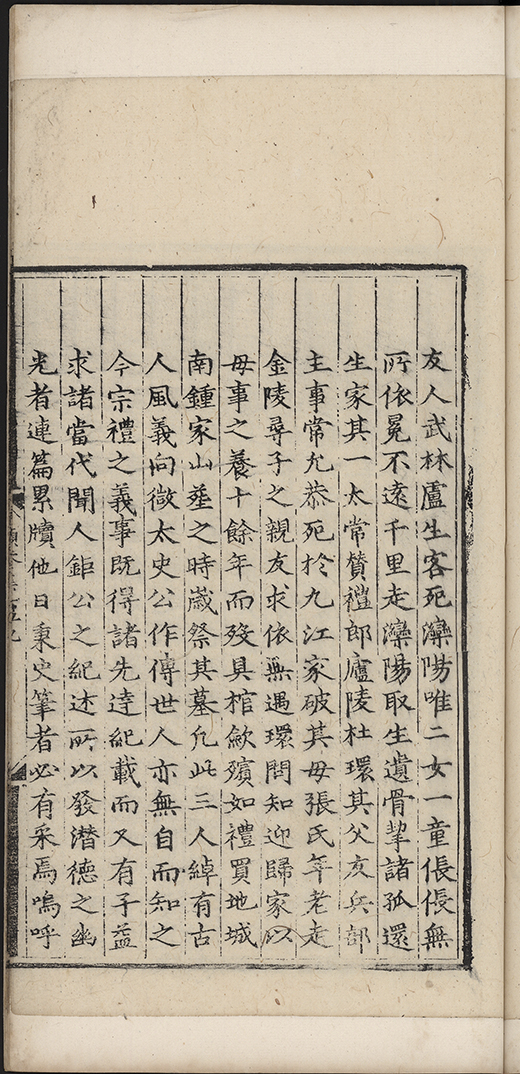 友人武林盧生客死灤陽唯二女一童倀倀無
所依冕不遠千里走灤陽取生遺骨挈諸孤還
生家其一太常贊禮郎廬陵杜環其父友兵部
主事常允恭死於九江家破其母張氏年老走
金陵尋子之親友求依無遇環問知迎歸家以
母事之養十餘年而歿具棺歛殯如禮買地城
南鍾家山塟之時歲祭其墓凢此三人綽有古
人風義向微太史公作傳世人亦無自而知之
今宗禮之義事旣得諸先逹紀載而又有子益
求諸當代聞人鉅公之紀述所以發潛德之幽
光者連篇累牘他日秉史筆者必有采焉嗚呼